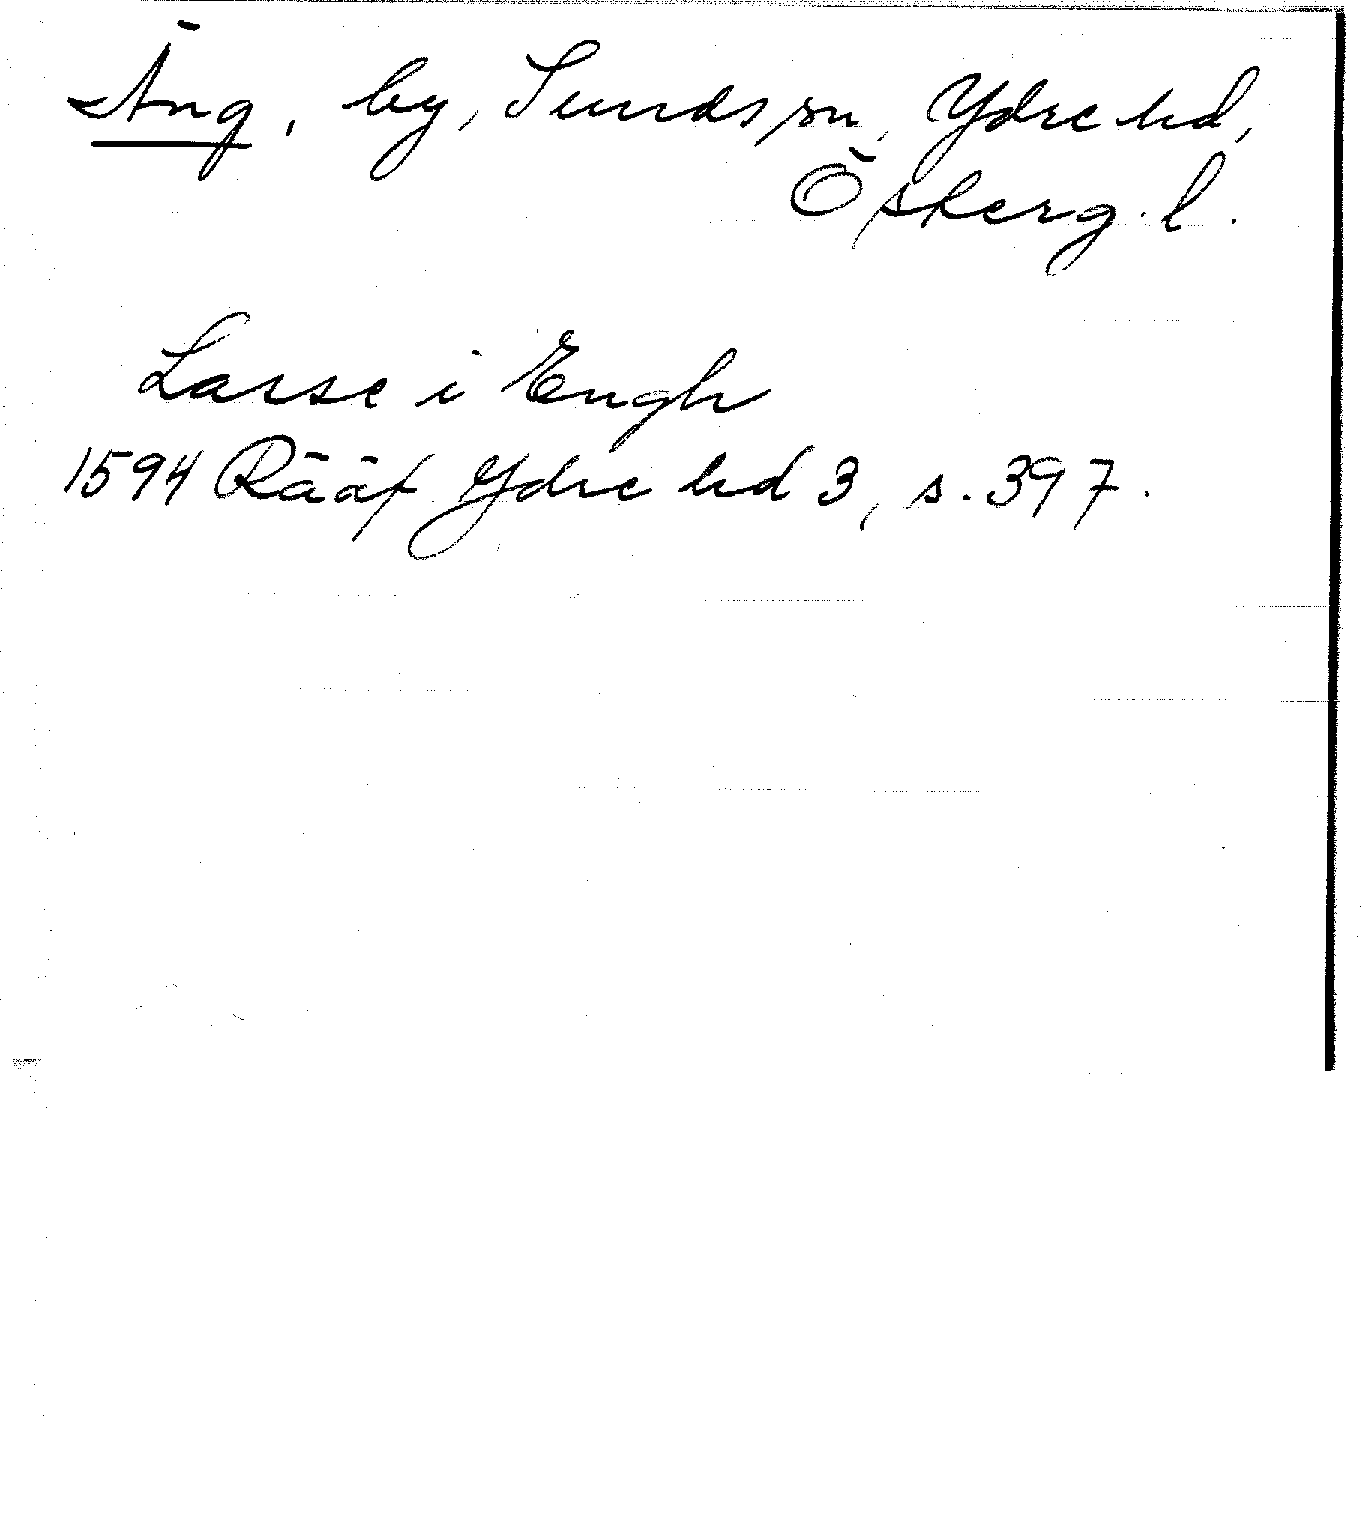 Äng, by, Sunds sn, Ydre hd,
Östergl.
Lasse i Engh
1594 Rääf Ydre hd 3, s. 397.